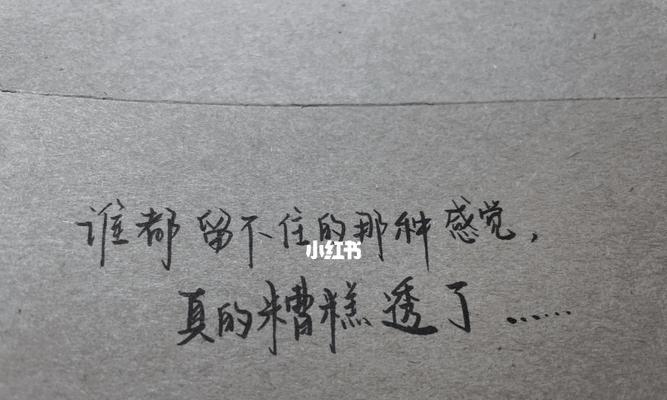 谁都留不住的那种感觉，
小红书
真的糟糕透了……